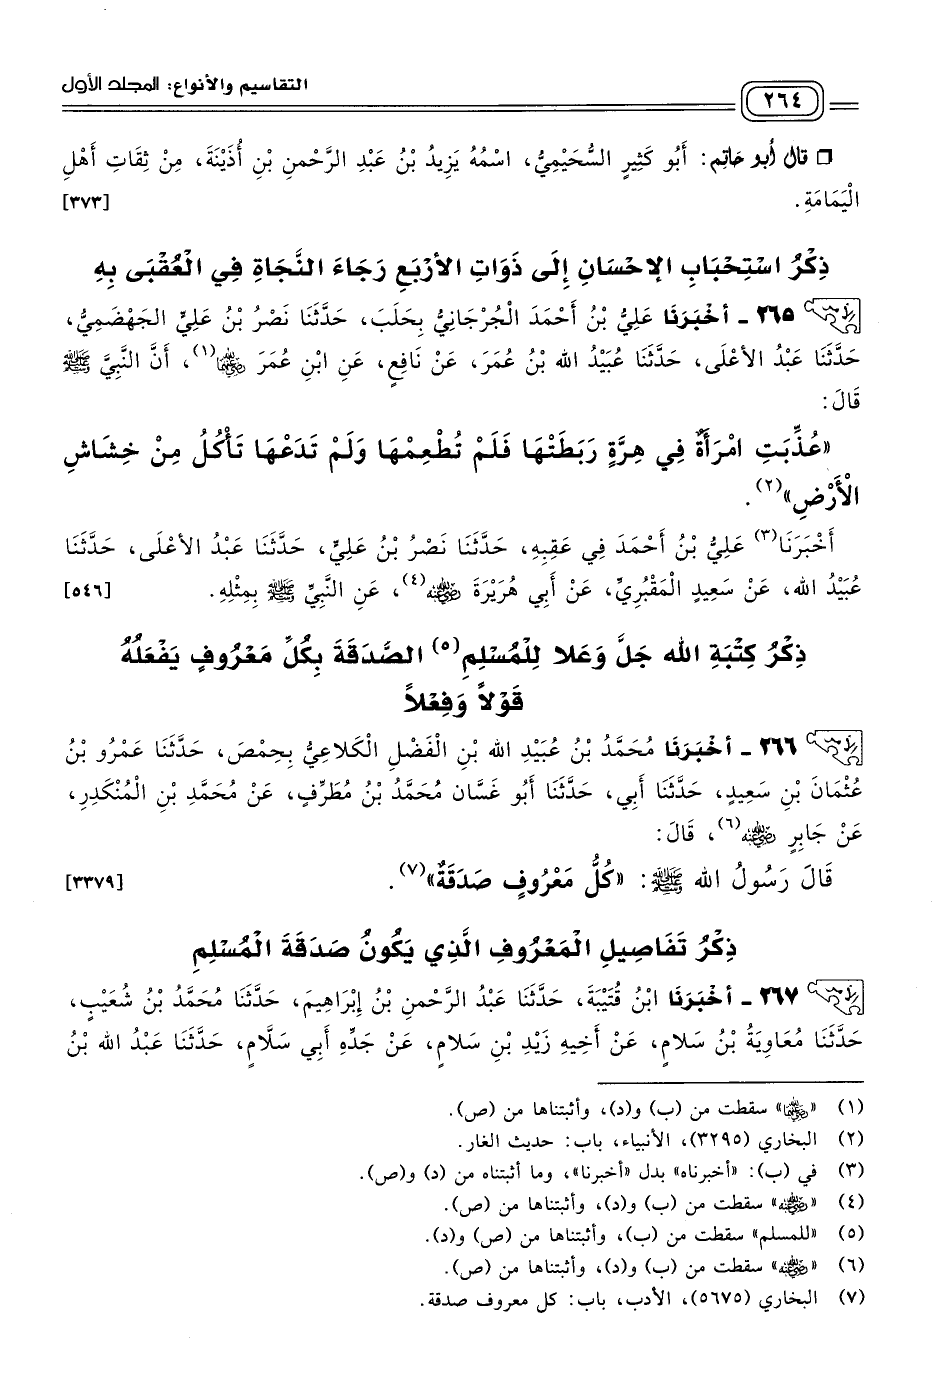 التقاسيم والأنواع: المجلد الأول
٢٦٤
❒ قال أبو حاتم: أَبُو كَثِيرٍ السُّحَيْمِيُّ، اسْمُهُ يَزِيدُ بْنُ عَبْدِ الرَّحْمنِ بْنِ أُذَيْنَةَ، مِنْ ثِقَاتِ أَهْلِ
الْيَمَامَةِ. [٣٧٣]
ذِكْرُ اسْتِحْبَابِ الإِحْسَانِ إِلَى ذَوَاتِ الأَرْبَعِ رَجَاءَ النَّجَاةِ فِي الْعُقْبَى بِهِ
٢٦٥ ـ أخْبَرَنَا عَلِيُّ بْنُ أَحْمَدَ الْجُرْجَانِيُّ بِحَلَبَ، حَدَّثَنَا نَصْرُ بْنُ عَلِيٍّ الجَهْضَمِيُّ،
حَدَّثَنَا عَبْدُ الأَعْلَى، حَدَّثَنَا عُبَيْدُ الله بْنُ عُمَرَ، عَنْ نَافِعٍ، عَنِ ابْنِ عُمَرَ رضي الله عنهما(١)، أَنَّ النَّبِيَّ ﷺ
قَالَ:
«عُذِّبَتِ امْرَأَةٌ فِي هِرَّةٍ رَبَطَتْهَا فَلَمْ تُطْعِمْهَا وَلَمْ تَدَعْهَا تَأْكُلُ مِنْ خِشَاشِ
الْأَرْضِ»(٢).
أَخْبَرَنَا(٣) عَلِيُّ بْنُ أَحْمَدَ فِي عَقِبِهِ، حَدَّثَنَا نَصْرُ بْنُ عَلِيٍّ، حَدَّثَنَا عَبْدُ الأَعْلَى، حَدَّثَنَا
عُبَيْدُ الله، عَنْ سَعِيدٍ الْمَقْبُرِيِّ، عَنْ أَبِي هُرَيْرَةَ رضي الله عنه(٤)، عَنِ النَّبِيِّ ﷺ بِمِثْلِهِ. [٥٤٦]
ذِكْرُ كِتْبَةِ الله جَلَّ وَعَلا لِلْمُسْلِمِ(٥) الصَّدَقَةَ بِكُلِّ مَعْرُوفٍ يَفْعَلُهُ
قَوْلاً وَفِعْلاً
٢٦٦ ـ أخْبَرَنَا مُحَمَّدُ بْنُ عُبَيْدِ الله بْنِ الْفَضْلِ الْكَلاعِيُّ بِحِمْصَ، حَدَّثَنَا عَمْرُو بْنُ
عُثْمَانَ بْنِ سَعِيدٍ، حَدَّثَنَا أَبِي، حَدَّثَنَا أَبُو غَسَّان مُحَمَّدُ بْنُ مُطَرِّفٍ، عَنْ مُحَمَّدِ بْنِ الْمُنْكَدِرِ،
عَنْ جَابِرٍ رضي الله عنه(٦)، قَالَ:
قَالَ رَسُولُ الله ﷺ: «كُلُّ مَعْرُوفٍ صَدَقَةٌ»(٧). [٣٣٧٩]
ذِكْرُ تَفَاصِيلِ الْمَعْرُوفِ الَّذِي يَكُونُ صَدَقَةَ الْمُسْلِمِ
٢٦٧ ـ أخْبَرَنَا ابْنُ قُتَيْبَةَ، حَدَّثَنَا عَبْدُ الرَّحْمنِ بْنُ إِبْرَاهِيمَ، حَدَّثَنَا مُحَمَّدُ بْنُ شُعَيْبٍ،
حَدَّثَنَا مُعَاوِيَةُ بْنُ سَلامٍ، عَنْ أَخِيهِ زَيْدِ بْنِ سَلامٍ، عَنْ جَدِّهِ أَبِي سَلَّامٍ، حَدَّثَنَا عَبْدُ الله بْنُ
(١) «رضي الله عنهما» سقطت من (ب) و(د)، وأثبتناها من (ص).
(٢) البخاري (٣٢٩٥)، الأنبياء، باب: حديث الغار.
(٣) في (ب): «أخبرناه» بدل «أخبرنا»، وما أثبتناه من (د) و(ص).
(٤) «رضي الله عنه» سقطت من (ب) و(د)، وأثبتناها من (ص).
(٥) «للمسلم» سقطت من (ب)، وأثبتناها من (ص) و(د).
(٦) «رضي الله عنه» سقطت من (ب) و(د)، وأثبتناها من (ص).
(٧) البخاري (٥٦٧٥)، الأدب، باب: كل معروف صدقة.